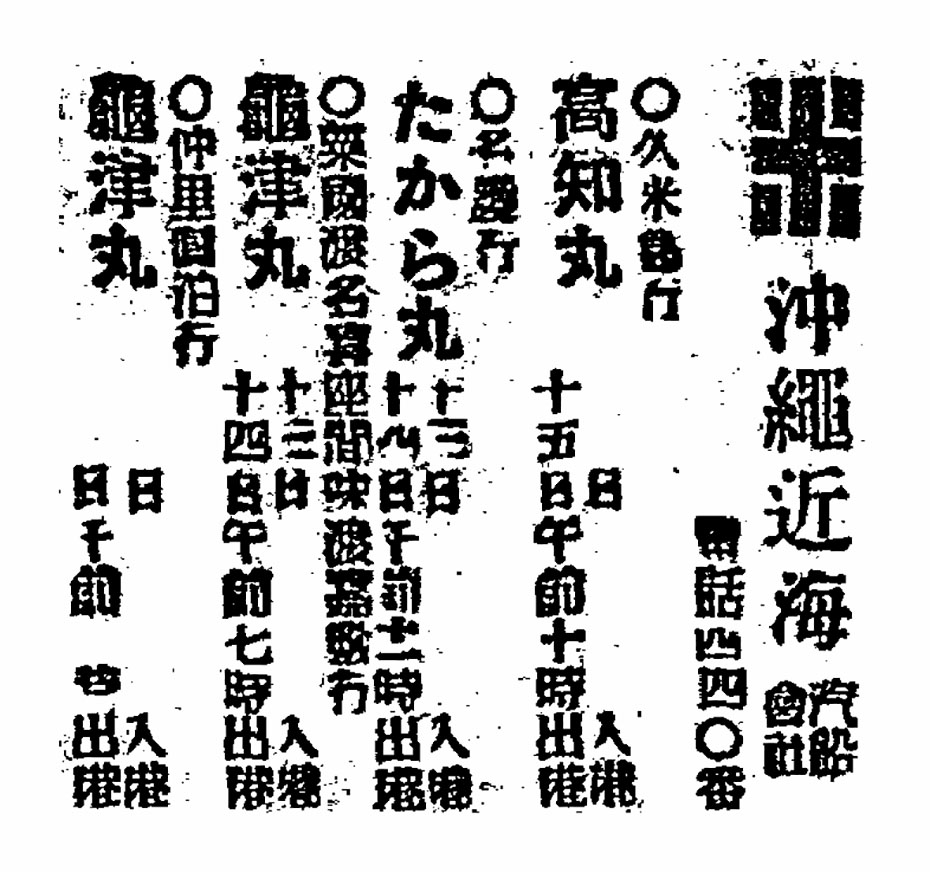 沖繩近海汽船會社
電話四四〇番
〇久米島行
高知丸
日入港
十五日午前十時出港
〇名護行
たから丸
十三日入港
十八日午前十二時出港
〇粟國渡名喜座間味渡嘉敷行
龜津丸
十三日入港
十四日午前七時出港
〇仲里泊行
龜津丸
日入港
日午前時出港